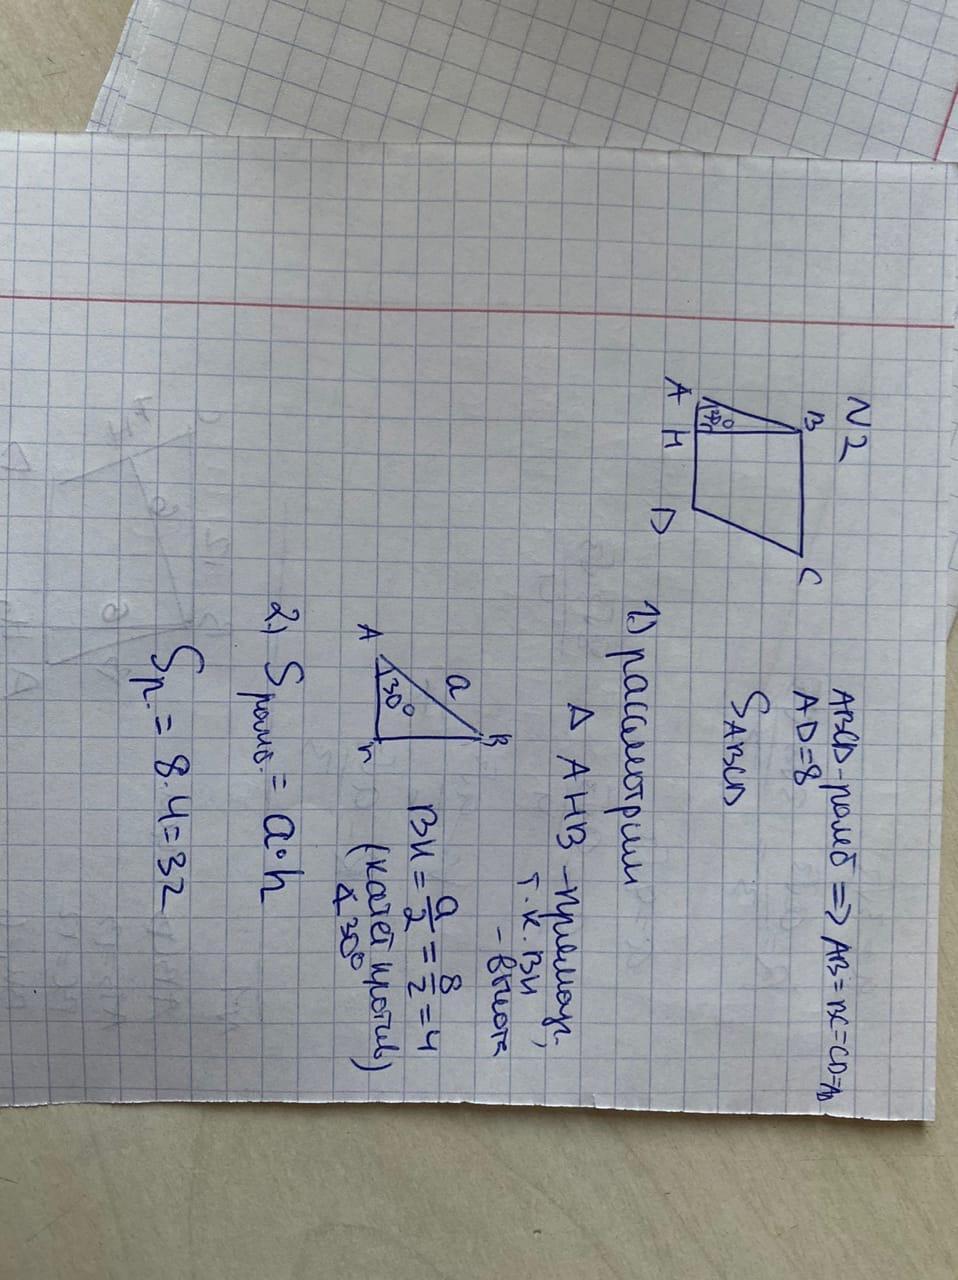 N2
B
C
A
30°
H
D
ABCD-ромб => AB=BC=CD=AD
AD=8
SABCD
1) рассмотрим
Δ AHB -прямоуг.,
т.к. BH
- высота
A
30°
a
B
BH = a/2 = 8/2 = 4
(катет против
∢30°)
2) Sромб. = a·h
Sр. = 8·4=32